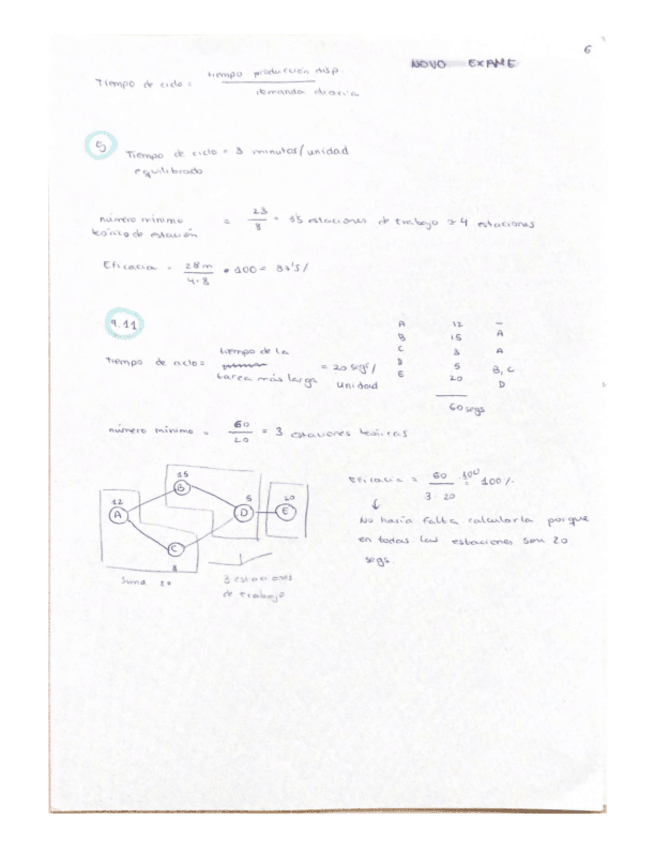 6
NOVO EXAME
Tiempo de ciclo = tiempo producción disp.
demanda diaria
5
Tiempo de ciclo = 3 minutos/unidad
equilibrado
número mínimo = 23/8 = estaciones de trabajo 4 estaciones
teórico de estación
Eficacia = 28m/4·8 • 100 =
9.11
A 12 —
B 15 A
C 8 A
D 5 B, C
E 20 D
60 segs
Tiempo de ciclo = tiempo de la tarea más larga = 20 seg/unidad
número mínimo = 60/20 = 3 estaciones teóricas
12 A
15 B
C 8
5 D
20 E
Suma 20
3 estaciones
de trabajo
Eficacia = 60/3·20 · 100 = 100%
No haría falta calcularla porque
en todas las estaciones son 20
segs